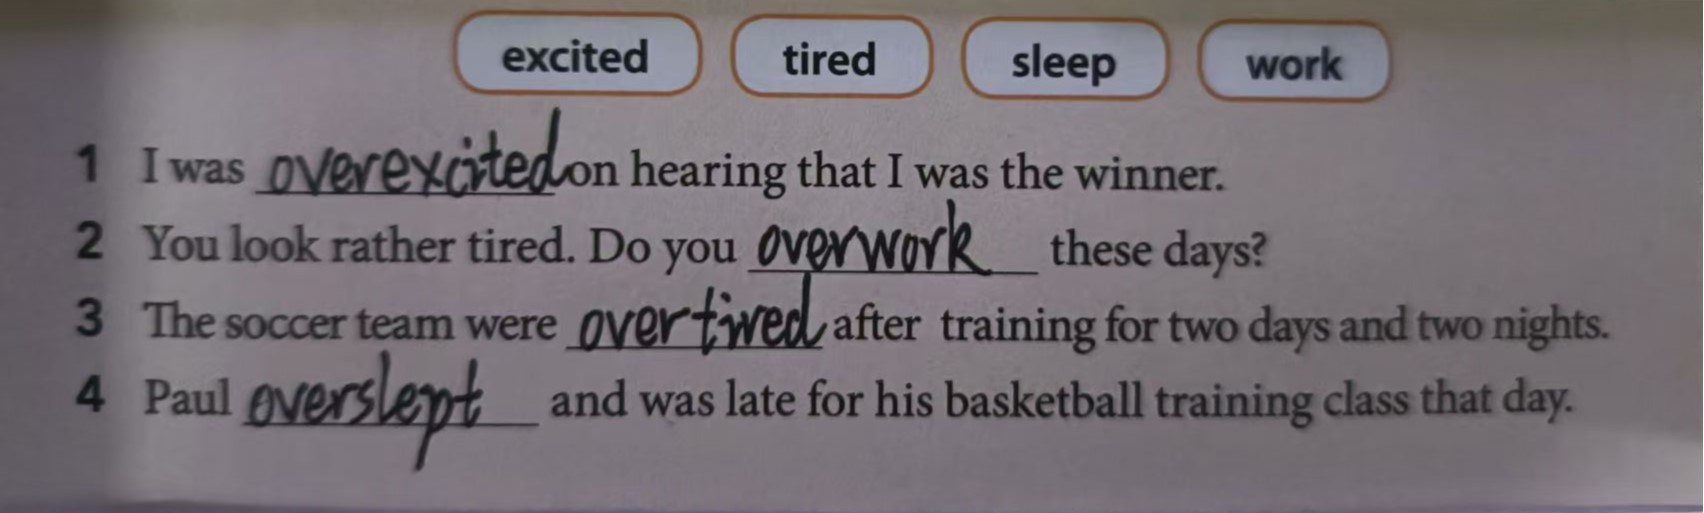 excited tired sleep work
1 I was overexcited on hearing that I was the winner.
2 You look rather tired. Do you overwork these days?
3 The soccer team were overtired after training for two days and two nights.
4 Paul overslept and was late for his basketball training class that day.